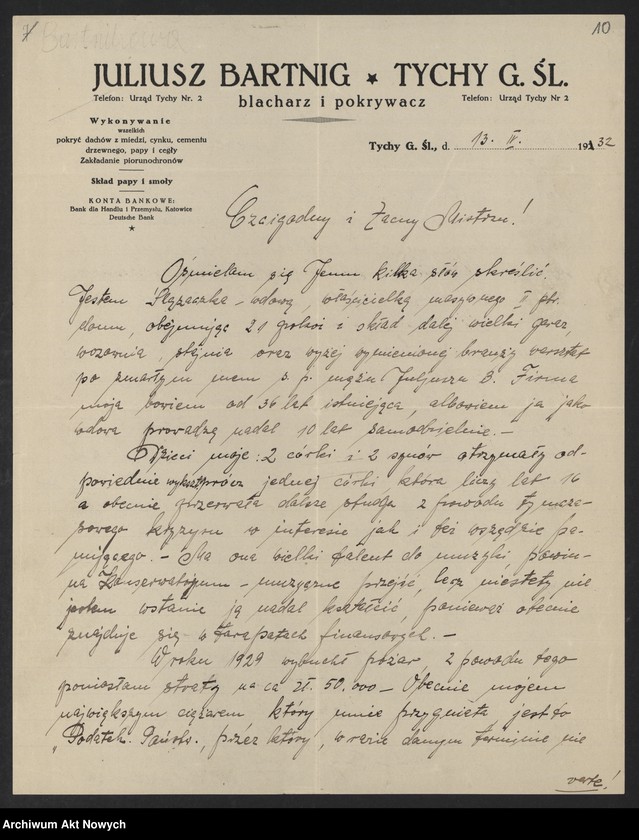 10
JULIUSZ BARTNIG ★ TYCHY G. ŚL.
Telefon: Urząd Tychy Nr. 2
blacharz i pokrywacz
Telefon: Urząd Tychy Nr 2
Wykonywanie
wszelkich
pokryć dachów z miedzi, cynku, cementu
drzewnego, papy i cegły
Zakładanie piorunochronów
Skład papy i smoły
KONTA BANKOWE:
Bank dla Handlu i Przemysłu, Katowice
Deutsche Bank
★
Tychy G. Śl., d. 13. IV. 1932
Czcigodny i Zacny Mistrzu!
Ośmielam się Jemu kilka słów skreślić.
Jestem Ślązaczka - wdową, właścicielką masywnego II ptr.
domu, obejmując 21 pokoi i skład dalej wielki garaż,
wozownia, stajnia oraz wyżej wymienionej branży warsztat
po zmarłym mem ś. p. mężu Juljuszu B. Firma
moja bowiem od 36 lat istniejąca, albowiem ja jako
wdowa prowadzę nadal 10 lat samodzielnie. -
Dzieci moje: 2 córki i 2 synów otrzymały od-
powiednie wykszt. prócz jednej córki która liczy lat 16
a obecnie przerwała dalsze studja z powodu tymcza-
sowego kryzysu w interesie jak i też wszędzie pa-
nującego. - Ma ona wielki talent do muzyki powin-
na Konserwatorjum - muzyczne przejść, lecz niestety nie
jestem wstanie ją nadal kształcić, ponieważ obecnie
znajduje się w tarapatach finansowych. -
W roku 1929 wybuchł pożar, z powodu tego
poniosłam straty na ca zł. 50.000 - Obecnie mojem
największym ciężarem, który mnie przygnieta jest to
"Podatek. Państw., przez który, w razie danym terminie nie
verte!
Archiwum Akt Nowych